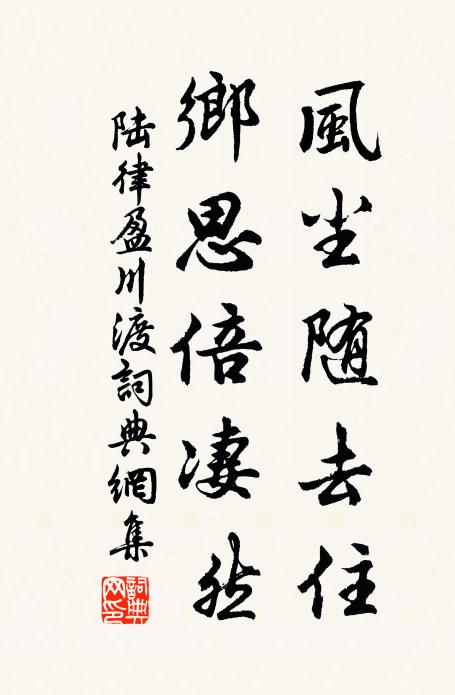 風尘随去住
鄉思倍凄然
陆律盈川渡詞典網集
詞典
网印